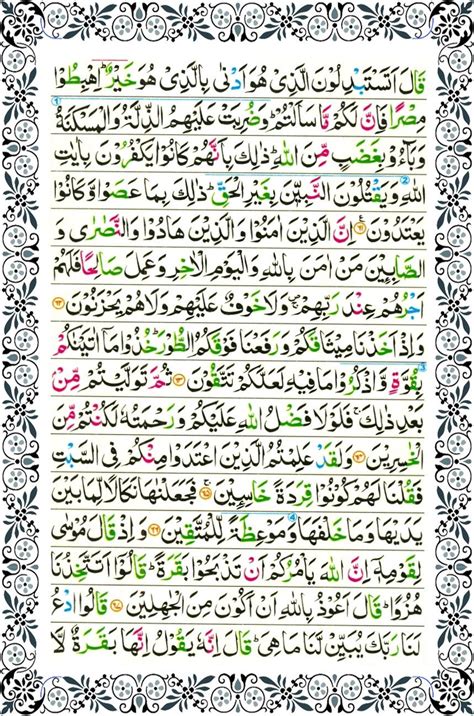 قَالَ اَتَسْتَبْدِلُوْنَ الَّذِيْ هُوَ اَدْنٰى بِالَّذِيْ هُوَ خَيْرٌ ؕ اِهْبِطُوْا
مِصْرًا فَاِنَّ لَكُمْ مَّا سَاَلْتُمْ ؕ وَضُرِبَتْ عَلَيْهِمُ الذِّلَّةُ وَالْمَسْكَنَةُ
وَبَآءُوْ بِغَضَبٍ مِّنَ اللّٰهِ ؕ ذٰلِكَ بِاَنَّهُمْ كَانُوْا يَكْفُرُوْنَ بِاٰيٰتِ
اللّٰهِ وَيَقْتُلُوْنَ النَّبِيّٖنَ بِغَيْرِ الْحَقِّ ؕ ذٰلِكَ بِمَا عَصَوْا وَّكَانُوْا
يَعْتَدُوْنَ ۝۶۱ اِنَّ الَّذِيْنَ اٰمَنُوْا وَالَّذِيْنَ هَادُوْا وَالنَّصٰرٰى وَ
الصّٰبِـِٕيْنَ مَنْ اٰمَنَ بِاللّٰهِ وَالْيَوْمِ الْاٰخِرِ وَعَمِلَ صَالِحًا فَلَهُمْ
اَجْرُهُمْ عِنْدَ رَبِّهِمْ ۚ وَلَا خَوْفٌ عَلَيْهِمْ وَلَا هُمْ يَحْزَنُوْنَ ۝۶۲
وَاِذْ اَخَذْنَا مِيْثَاقَكُمْ وَرَفَعْنَا فَوْقَكُمُ الطُّوْرَ ؕ خُذُوْا مَآ اٰتَيْنٰكُمْ
بِقُوَّةٍ وَّاذْكُرُوْا مَا فِيْهِ لَعَلَّكُمْ تَتَّقُوْنَ ۝۶۳ ثُمَّ تَوَلَّيْتُمْ مِّنْۢ
بَعْدِ ذٰلِكَ ۚ فَلَوْلَا فَضْلُ اللّٰهِ عَلَيْكُمْ وَرَحْمَتُهٗ لَكُنْتُمْ مِّنَ
الْخٰسِرِيْنَ ۝۶۴ وَلَقَدْ عَلِمْتُمُ الَّذِيْنَ اعْتَدَوْا مِنْكُمْ فِي السَّبْتِ
فَقُلْنَا لَهُمْ كُوْنُوْا قِرَدَةً خَاسِـِٕيْنَ ۝۶۵ فَجَعَلْنٰهَا نَكَالًا لِّمَا بَيْنَ
يَدَيْهَا وَمَا خَلْفَهَا وَمَوْعِظَةً لِّلْمُتَّقِيْنَ ۝۶۶ وَاِذْ قَالَ مُوْسٰى
لِقَوْمِهٖٓ اِنَّ اللّٰهَ يَاْمُرُكُمْ اَنْ تَذْبَحُوْا بَقَرَةً ؕ قَالُوْٓا اَتَتَّخِذُنَا
هُزُوًا ؕ قَالَ اَعُوْذُ بِاللّٰهِ اَنْ اَكُوْنَ مِنَ الْجٰهِلِيْنَ ۝۶۷ قَالُوا ادْعُ
لَنَا رَبَّكَ يُبَيِّنْ لَّنَا مَا هِيَ ؕ قَالَ اِنَّهٗ يَقُوْلُ اِنَّهَا بَقَرَةٌ لَّا